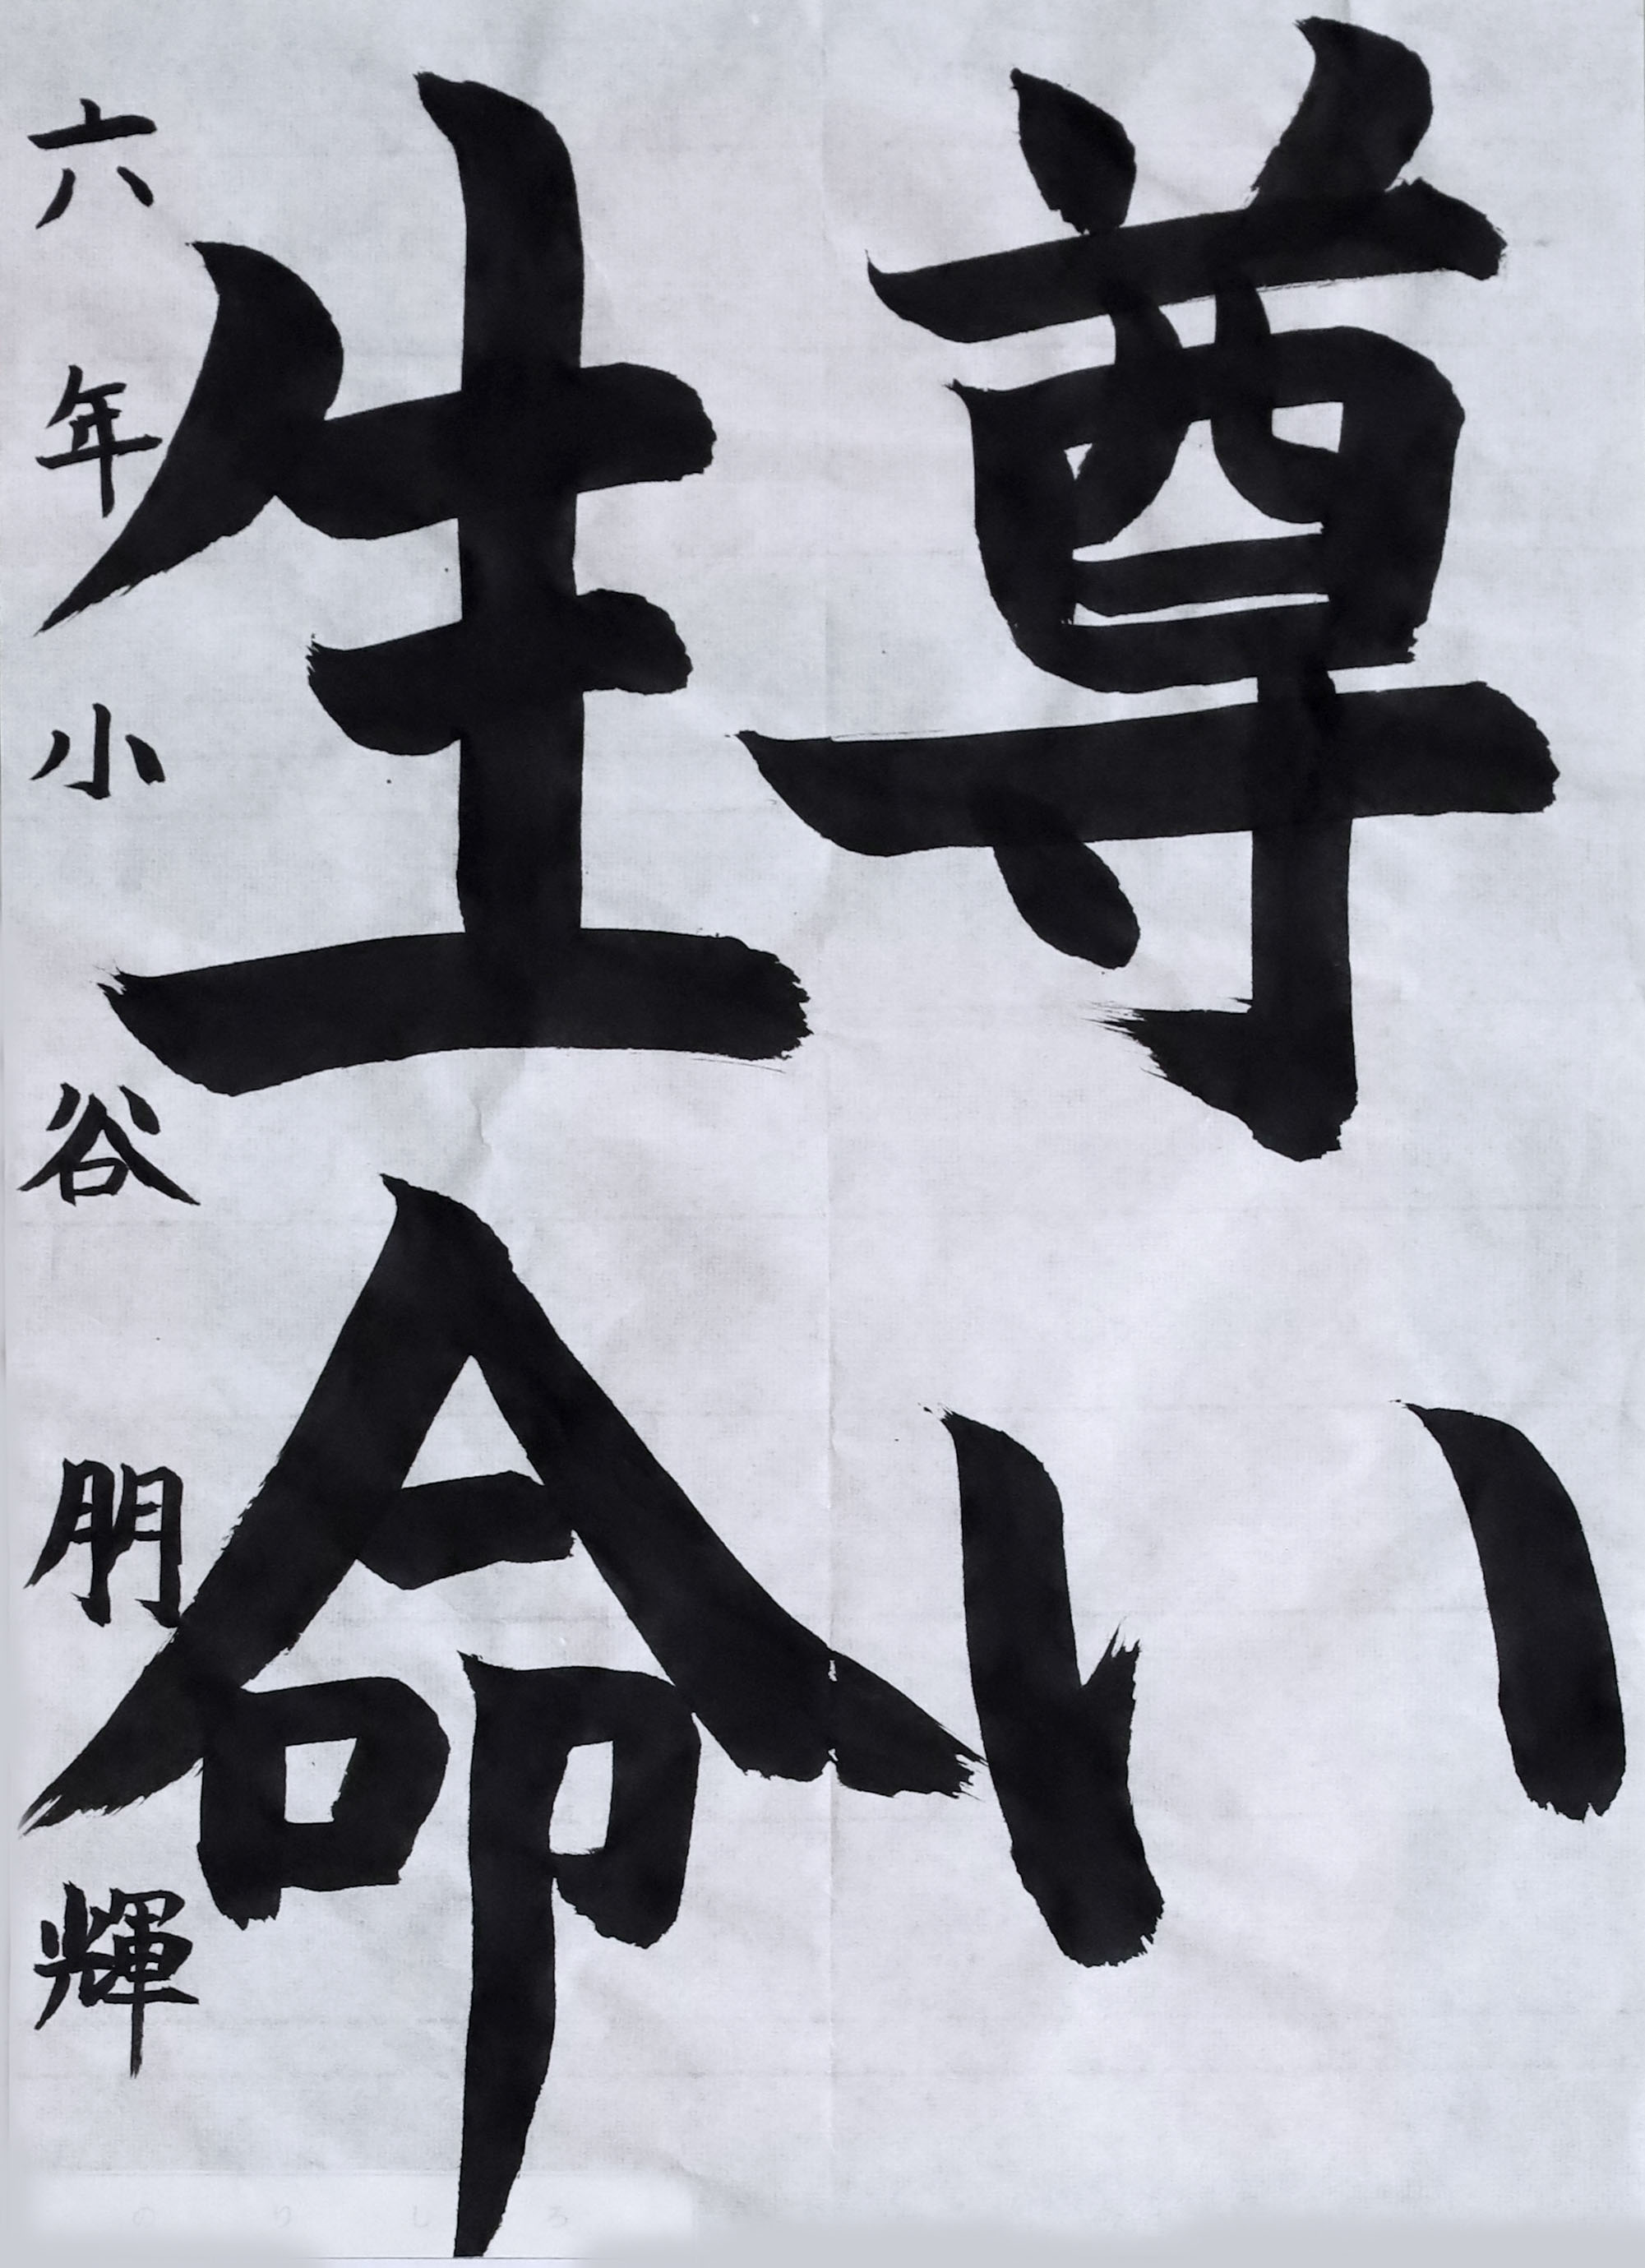 尊い
生命
六年 小谷 朋輝
のりしろ